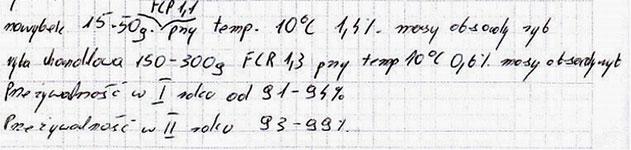 FCR 1,1
narybek 15-50g. przy temp. 10°C 1,4% masy obsady ryb
ryba handlowa 150-300g FCR 1,3 przy temp 10°C 0,6% masy obsady ryb
Przeżywalność w I roku od 91-94%
Przeżywalność w II roku 93-99%